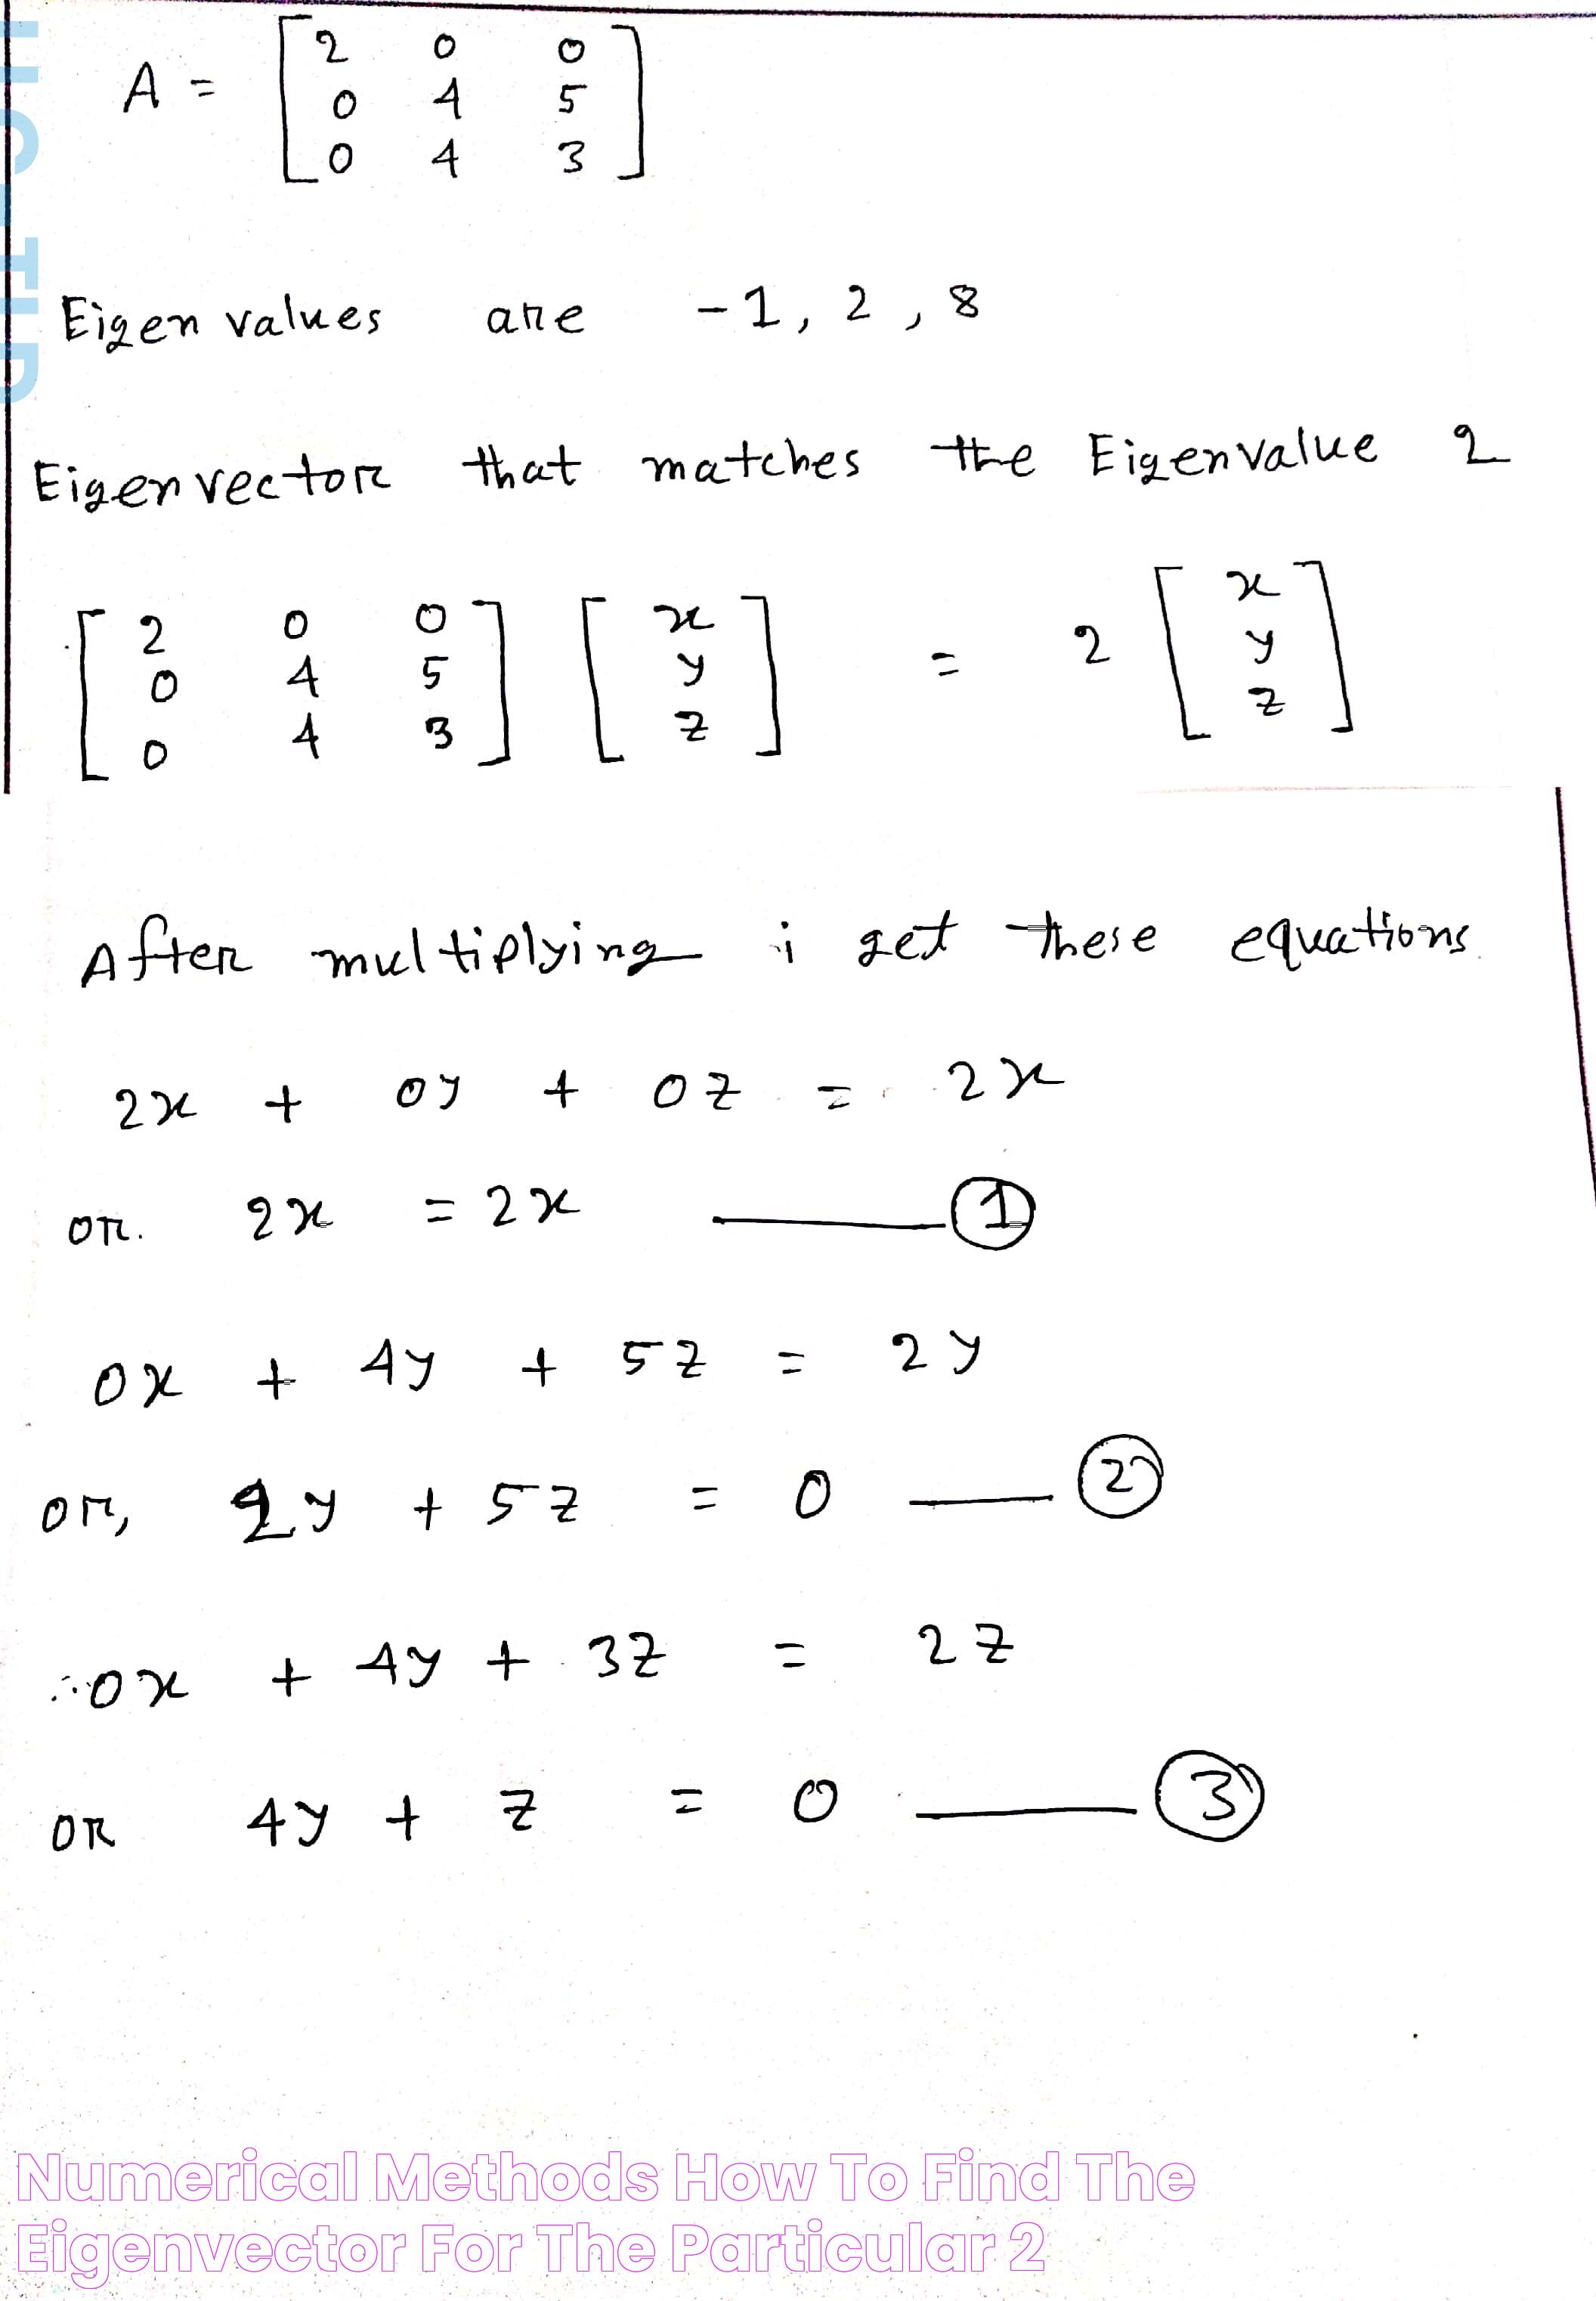 A = [ 2 0 0
0 4 5
0 4 3 ]
Eigen values are -1, 2, 8
Eigenvector that matches the Eigenvalue 2
[ 2 0 0 ] [ x ] = 2 [ x ]
0 4 5 y y
0 4 3 z z
After multiplying i get these equations
2x + 0y + 0z = 2x
or. 2x = 2x —— 1
0x + 4y + 5z = 2y
or, 2y + 5z = 0 — 2
0x + 4y + 3z = 2z
or 4y + z = 0 —— 3
Numerical Methods How To Find The
Eigenvector For The Particular 2